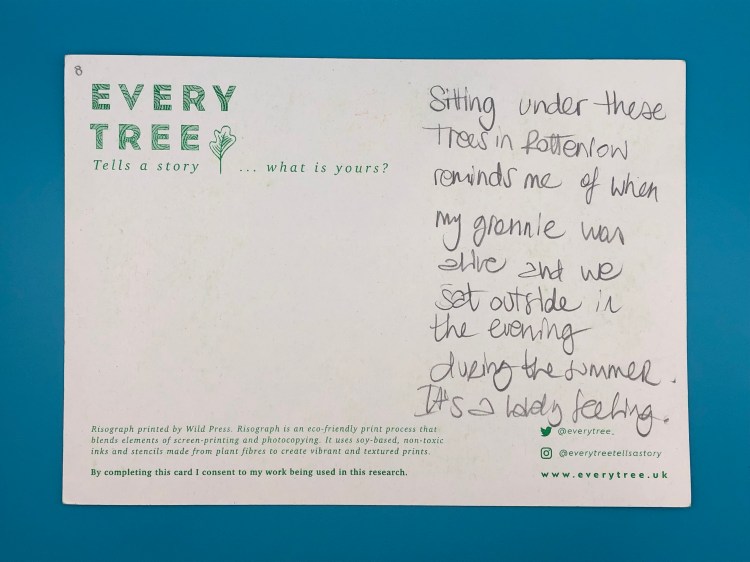 8
EVERY
TREE
Tells a story ... what is yours?
Sitting under these
Trees in Rottenrow
reminds me of when
my grannie was
alive and we
sat outside in
the evening
during the summer.
It's a lovely feeling.
Risograph printed by Wild Press. Risograph is an eco-friendly print process that
blends elements of screen-printing and photocopying. It uses soy-based, non-toxic
inks and stencils made from plant fibres to create vibrant and textured prints.
By completing this card I consent to my work being used in this research.
@everytree_
@everytreetellsastory
www.everytree.uk